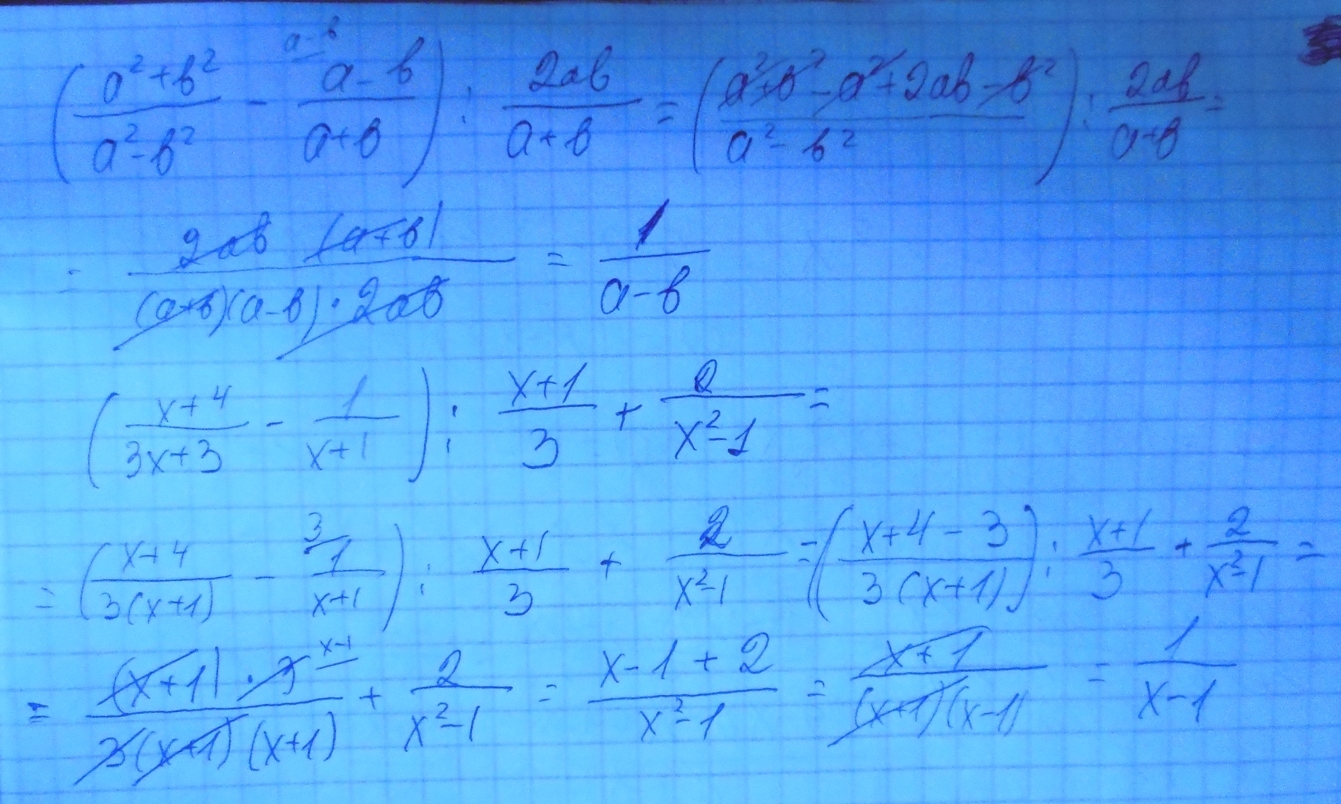 (a²+b²/a²-b² - a-b/a+b ᵃ⁻ᵇ) : 2ab/a+b = (a²+b²-a²+2ab-b²/a²-b²) : 2ab/a+b =
= 2ab (a+b)/(a+b)(a-b)·2ab = 1/a-b
(x+4/3x+3 - 1/x+1) : x+1/3 + 2/x²-1 =
= (x+4/3(x+1) - ³1/x+1) : x+1/3 + 2/x²-1 = (x+4-3/3(x+1)) : x+1/3 + 2/x²-1 =
= (x+1)·3 ˣ⁻¹/3(x+1)(x+1) + 2/x²-1 = x-1+2/x²-1 = x+1/(x+1)(x-1) = 1/x-1